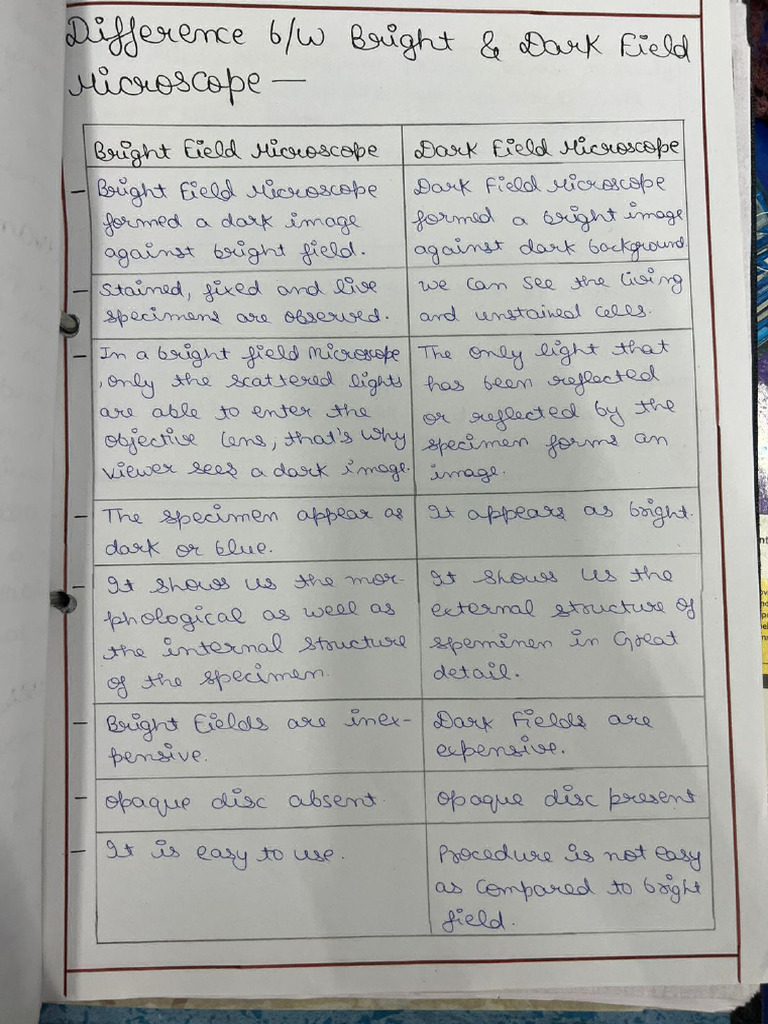 Difference b/w Bright & Dark Field
Microscope —
Bright Field Microscope
Dark Field Microscope
– Bright Field Microscope
formed a dark image
against bright field.
Dark Field Microscope
formed a bright image
against dark background
– Stained, fixed and live
specimens are observed.
we can see the living
and unstained cells.
– In a bright field Microscope
, only the scattered lights
are able to enter the
objective lens, that's why
viewer sees a dark image.
The only light that
has been reflected
or reflected by the
specimen forms an
image.
– The specimen appear as
dark or blue.
It appears as bright.
– It shows us the mor-
phological as well as
the internal structure
of the specimen.
It shows us the
external structure of
speminen in Great
detail.
– Bright Fields are inex-
pensive.
Dark Fields are
expensive.
– Opaque disc absent.
Opaque disc present
– It is easy to use.
Procedure is not easy
as compared to bright
field.